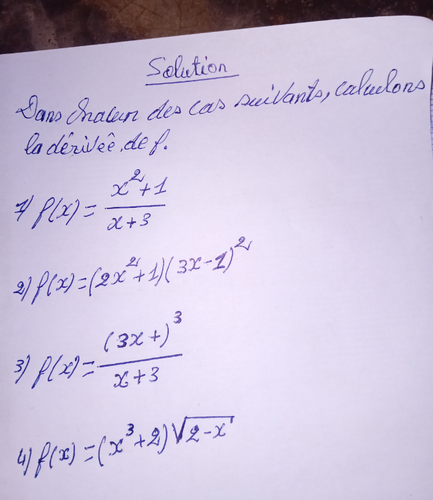 Solution
Dans chacun des cas suivants, calculons
la dérivée de f.
1) f(x) = (x²+1)/(x+3)
2) f(x) = (2x²+1)(3x-1)²
3) f(x) = (3x+)³/(x+3)
4) f(x) = (x³+2)√(2-x)